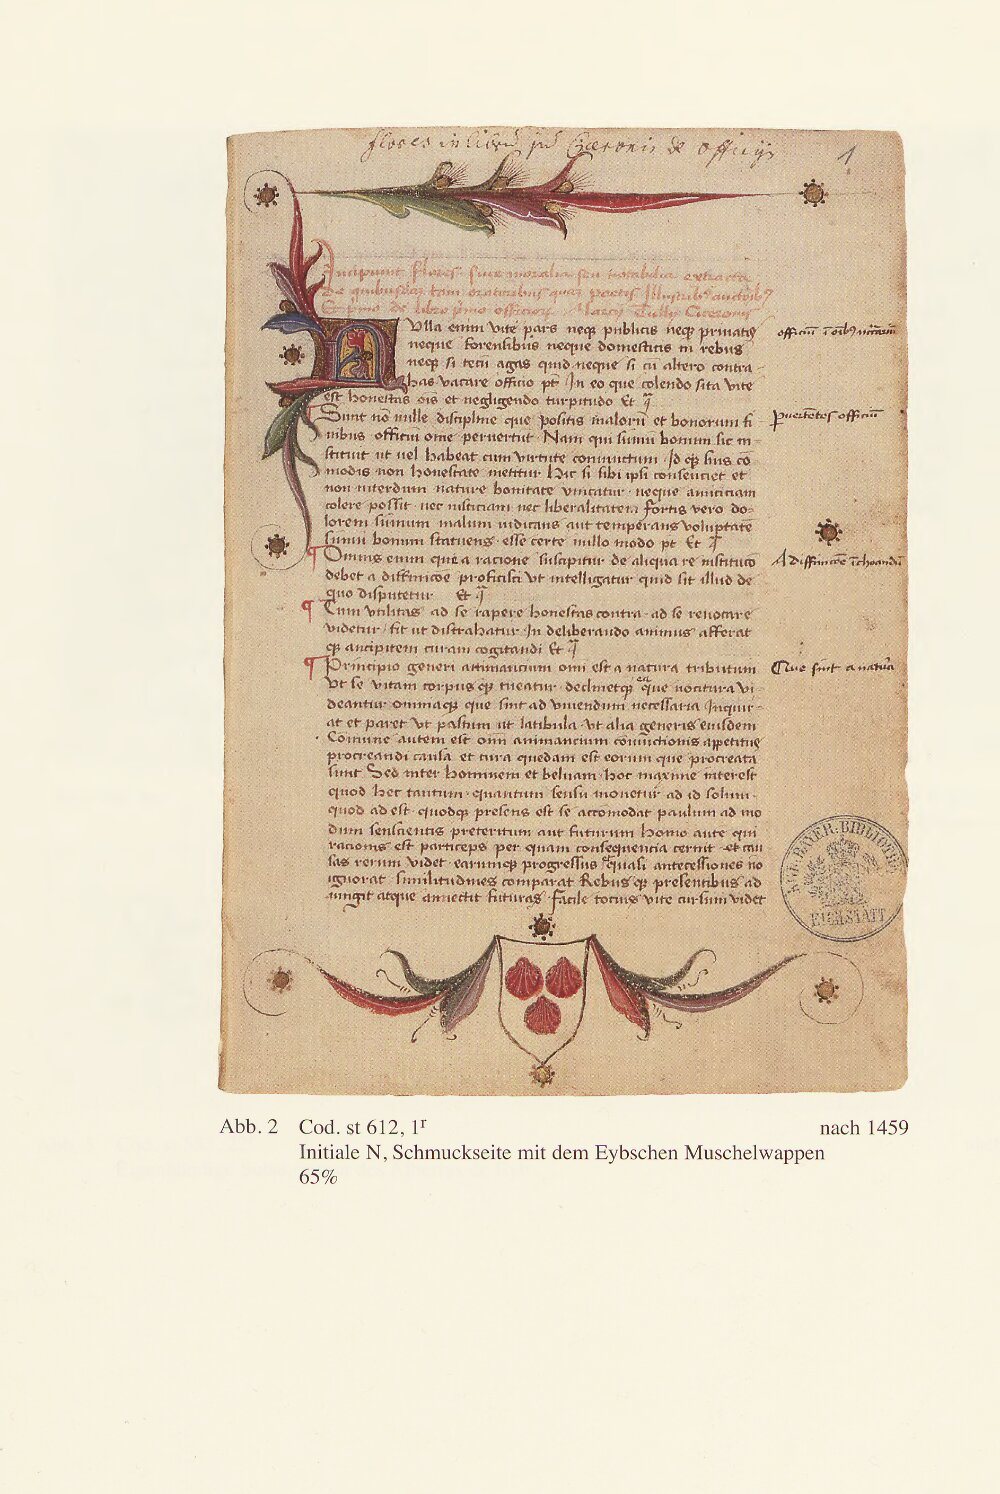 flores in libru pri Ciceronis de officijs
1
Incipiunt flores siue moralia seu notabilia extracta
de quibusdam tam oratoribus quam poetis Illustribꝰ auctoribꝰ
Et primo de libro primo officiorum Marcij Tullij Ciceronis
Vlla enim vite pars neqꝫ publicis neqꝫ priuatis
neque forensibus neque domesticis in rebus
neqꝫ si tecū agas quid neque si cū altero contra-
has vacare officio pt In eo que colendo sita vite
est honestas ois et negligendo turpitudo Et
Sunt nō nulle discipline que positis malorū et bonorum fi-
nibus officiū ome peruertūt Nam qui sumū bonum sic in-
stituit ut uel habeat cum virtute coniunctum Id qꝫ suis cō-
modis non honestate metitur Hic si sibi ipsi consenciet et
non interdum nature bonitate vincatur neque amiciciam
colere possit nec iusticiam nec liberalitatem fortis vero do-
lorem sūmum malum iudicans aut temperans voluptatē
sumū bonum statuens esse certe nullo modo pt Et
Omnis enim que a racione suscipitur de aliqua re institucō
debet a diffinicōe proficisci vt intelligatur quid sit illud de
quo disputetur Et
Cum vtilitas ad se rapere honestas contra ad se reuocare
videtur fit ut distrahatur In deliberando animus afferat
qꝫ ancipitem curam cogitandi Et
Principio generi animancium omī est a natura tributum
Vt se vitam corpus qꝫ tueatur declinetqꝫ ea que nocitura vi-
deantur omniaqꝫ que sint ad viuendum necessaria Inquir-
at et paret Vt pastum ut latibula Vt alia generis eiusdem
Comune autem est omī animancium coniunctionis appetitus
procreandi causa et cura quedam est eorum que procreata
sunt Sed inter hominem et beluam hoc maxime interest
quod hec tantum quantum sensu mouetur ad id solum
quod ad est quodqꝫ presens est se accomodat paulum ad mo
dum senscientis preteritum aut futurum Homo aute qui
racionis est particeps per quam consequencia cernit et cau
sas rerum videt earumqꝫ progressus quasi antecessiones nō
ignorat similitudines comparat Rebus qꝫ presentibus ad
iungit atque annectit futuras facile tocius vite cursum videt
Que sint a natura
KGL. BAYER. BIBLIOTHEK
EICHSTÄTT
Abb. 2 Cod. st 612, 1r nach 1459
Initiale N, Schmuckseite mit dem Eybschen Muschelwappen
65%